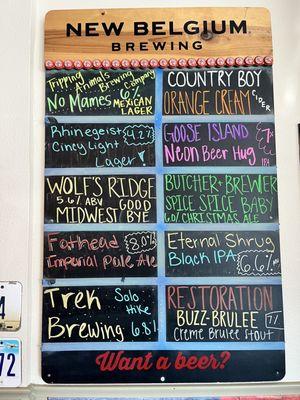 NEW BELGIUM
BREWING
Tripping Animals Brewing Company
No Mames 6%
MEXICAN
LAGER
COUNTRY BOY
ORANGE CREAM CIDER
Rhinegeist 4.2%
Cincy Light
Lager
GOOSE ISLAND 7%
Neon Beer Hug IPA
WOLF'S RIDGE
5.6% ABV GOOD
MIDWEST BYE
BUTCHER + BREWER
SPICE SPICE BABY
CHRISTMAS ALE
Fathead 8.0%
Imperial Pale Ale
Eternal Shrug
Black IPA 6.6%
Trek Solo
Hike
Brewing 6.8%
RESTORATION
BUZZ-BRULEE 7%
Creme Brulee Stout
Want a beer?
72